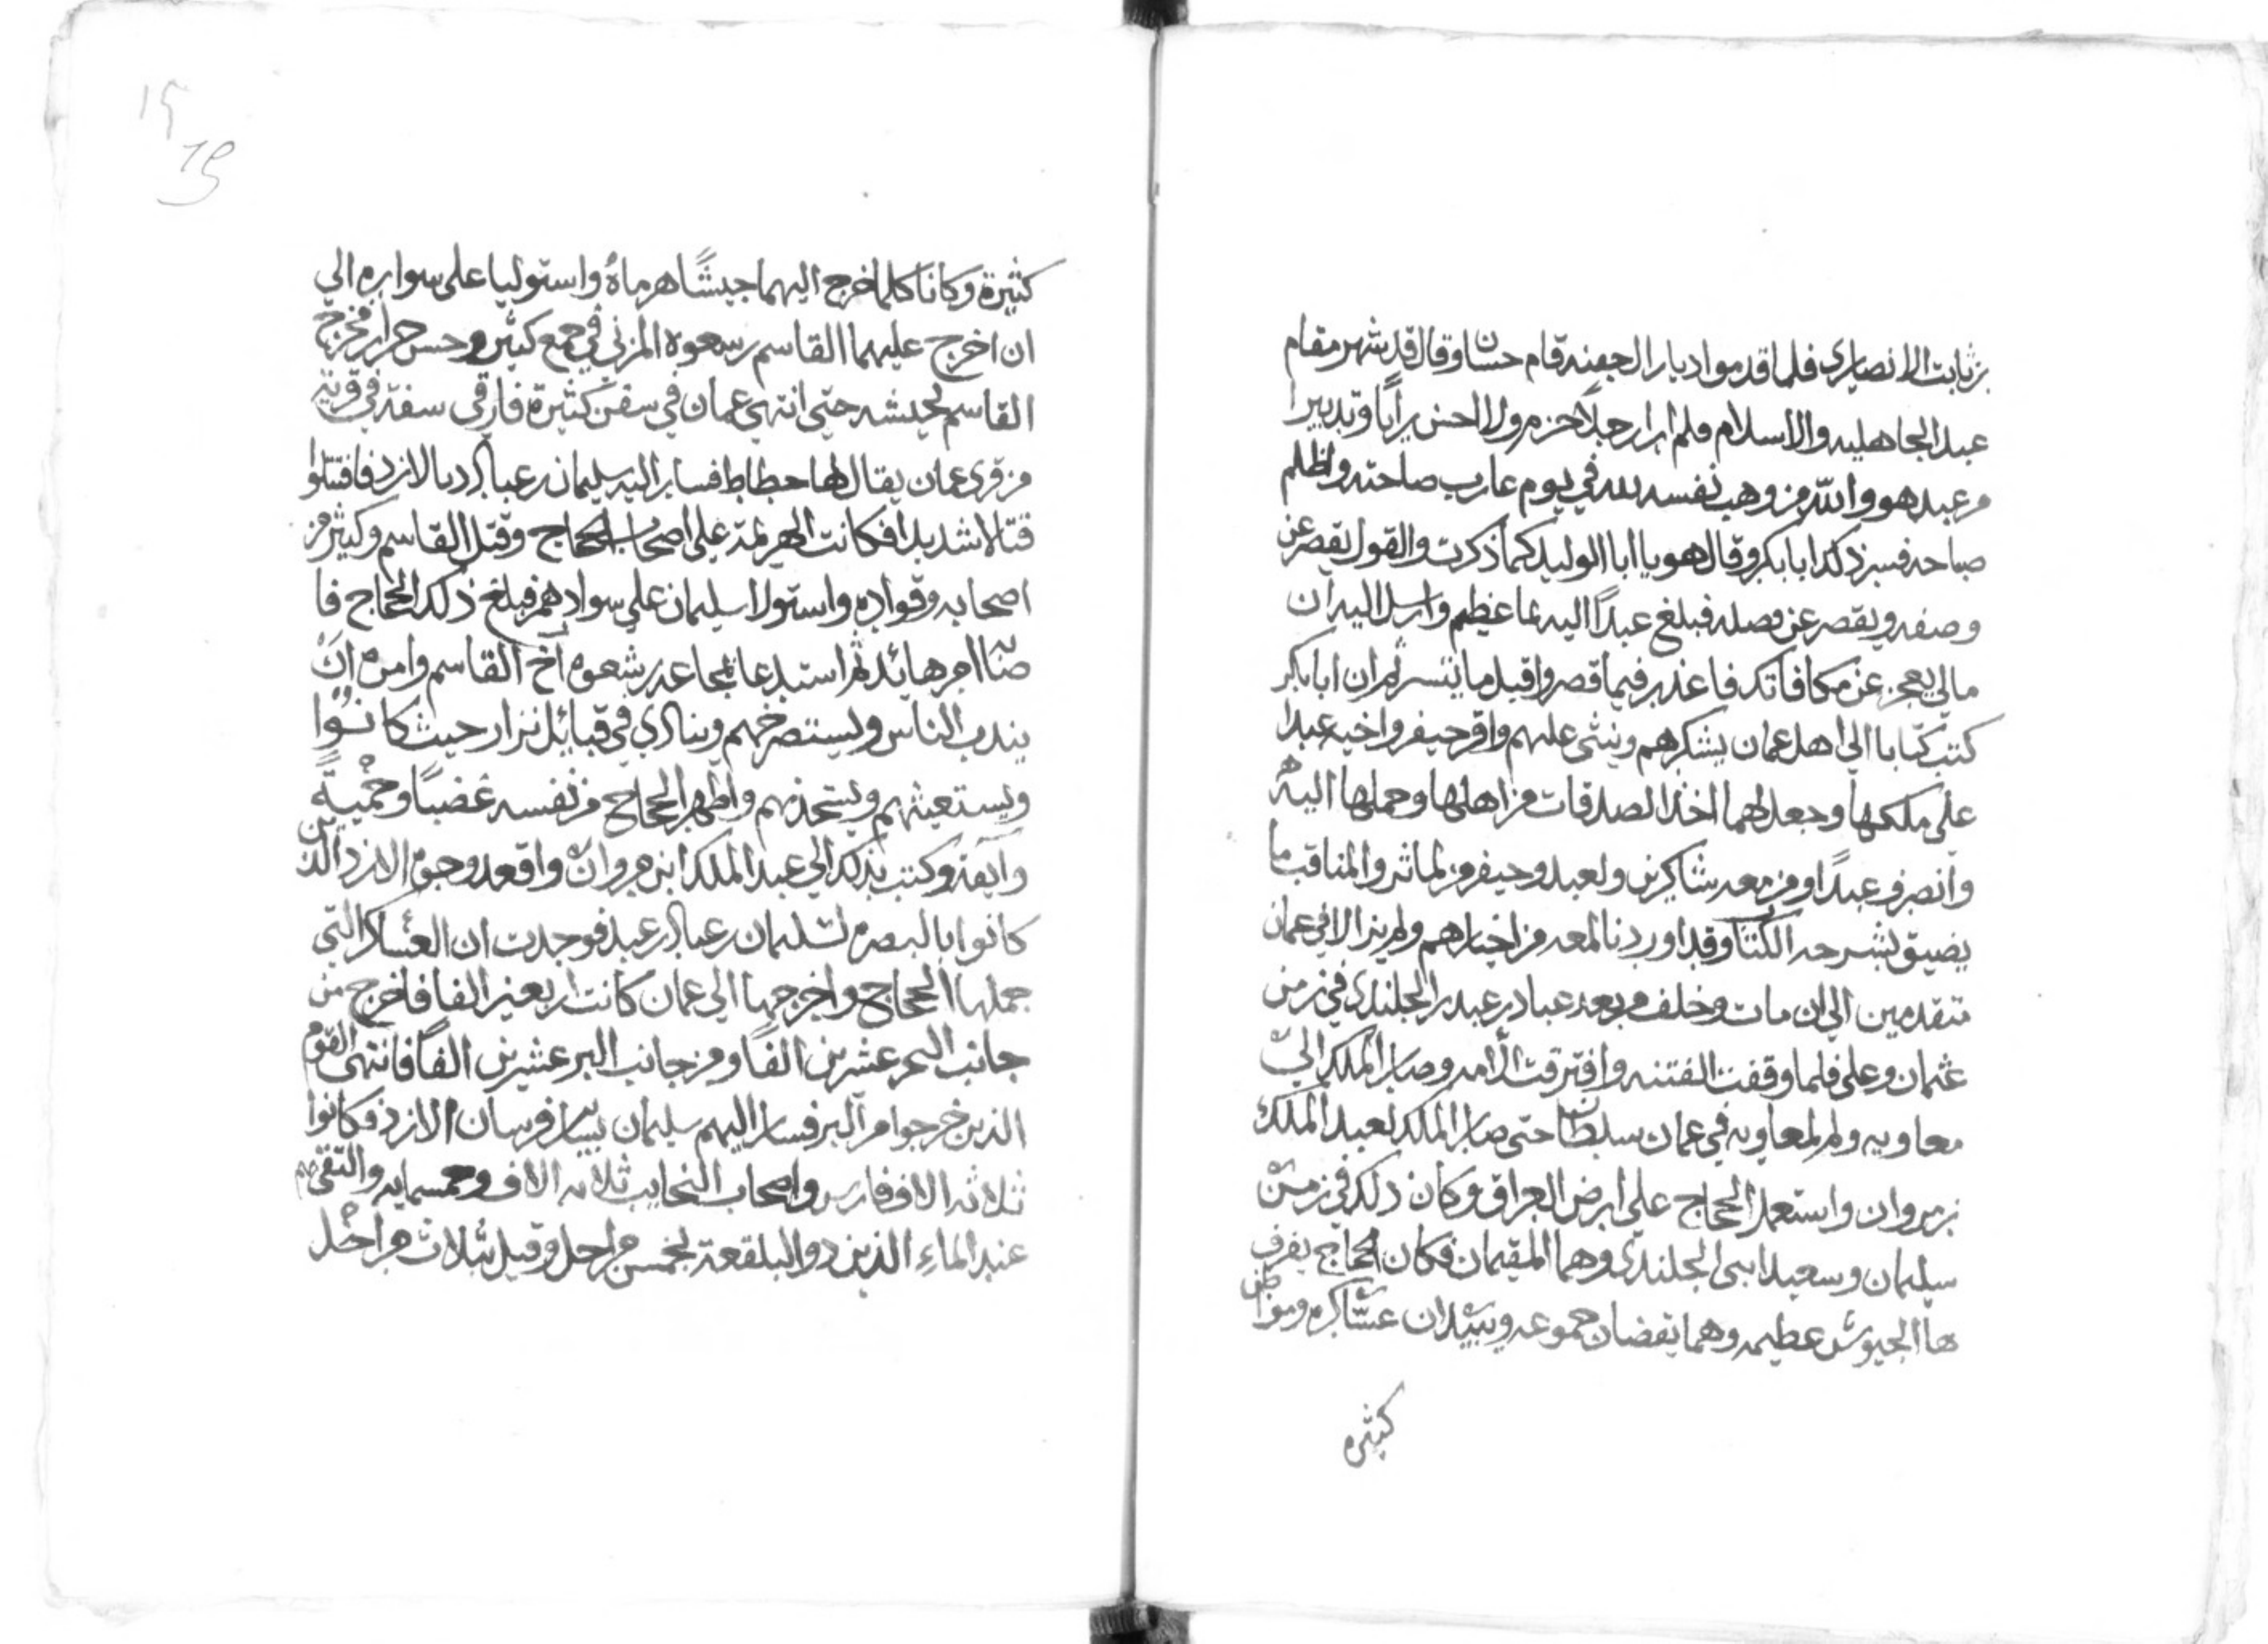 بن ثابت الانصاري فلما قدموا ديار ال جفنه قام حسان وقال قد شهر مقام
عبد الجاهليه والاسلام فلم ار رجلا احزم ولا احسن رايًا وتدبيرا
من عبد هو والله من وهب نفسه لله في يوم عارت صباحته واظلم
صباحه فسر ذلك ابا بكر وقال هو يا ابا الوليد كما ذكرت والقول يقصر عن
وصفه ويقصر عن فصله فبلغ عبدًا اليه بما عظيم وارسل اليه ان
مالي يعجز عن مكافاتك فاعذر فيما قصر واقبل ما تيسر ثم ان ابا بكر
كتب كتابا الى اهل عمان يشكرهم ويثني عليهم واقر حيفر واخيه عبدا
على ملكها وجعل لهما اخذ الصدقات من اهلها وحملها اليه
وانصرف عبدًا ومن معه شاكرين ولعبد وحيفر من الماثر والمناقب ما
يضيق بشرحه الكتاب وقد اوردنا لمعه من اخبارهم ولم يزالا في عمان
متقدمين الى ان مات وخلف من بعد عباد بن عبد بن الجلندى في زمن
عثمان وعلى فلما وقفت الفتنه وافترقت الامه وصار الملك الى
معاويه ولم لمعاويه في عمان سلطان حتى صار الملك لعبد الملك
بن مروان واستعمل الحجاج على ارض العراق وكان ذلك في زمن
سليمان وسعيد ابني الجلندى وهما المقيمان فكان الحجاج يغزى
ها الجيوش عظيمه وهما يفضان جموعه ويبيدان عساكره ومواطن
كثيره
١٥
15
كثيرة وكانا كلما اخرج اليهما جيشًا هزماهُ واستوليا على سواره الى
ان اخرج عليهما القاسم بن شعوه المزني في جمع كثير وحس جرار فخرج
القاسم بجيشه حتى انتهى عمان في سفن كثيرة فارقى سفنه في قرية
من قرى عمان يقال لها حطاط فسار اليه سليمان بن عباد بالازد فاقتتلوا
قتالا شديدا فكانت الهزيمة على اصحاب الحجاج وقتل القاسم وكثير من
اصحابه وقواده واستولا سليمان على سوادهم فبلغ ذلك الحجاج فا
صا امر هائد ثم استدعا بمجاعه بن شعوه اخ القاسم وامره ان
يندب الناس ويستصرخهم وينادي في قبائل نزار حيث كانوا
ويستعيثهم ويستنجذهم واظهر الحجاج من نفسه غضبًا وحميةً
وانفة وكتب بذلك الى عبد الملك ابن مروان واقعد وجوه الازد الذين
كانوا بالبصره لسليمان بن عباد بن عبد فوجدت ان العساكر التي
جملها الحجاج واخرجها الى عمان كانت اربعين الفا فاخرج من
جانب البحر عشرين الفًا ومن جانب البر عشرين الفًا فانتهى القوم
الذين خرجوا من البر فسار اليهم سليمان بسار فرسان الازد فكانوا
ثلاثه الاف فارس واصحاب النجايب ثلاثه الاف وخمسمايه والتقى هم
عند الماء الذين دو البلقعة بخمس مراحل وقيل بثلاث مراحل